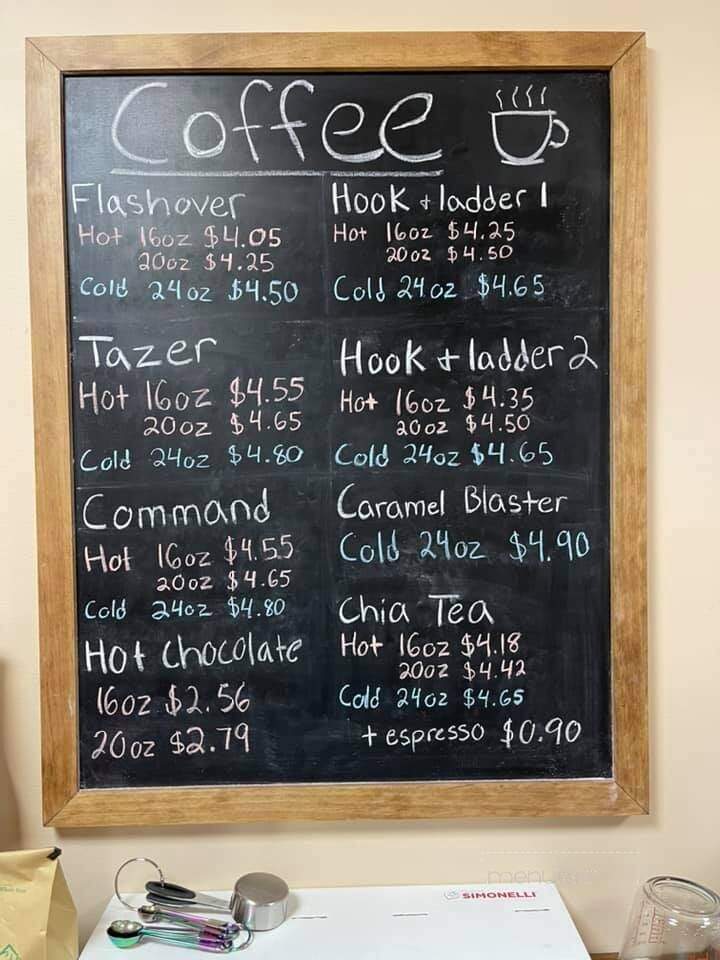 Coffee
Flashover
Hot 16oz $4.05
20oz $4.25
Cold 24oz $4.50
Hook + ladder 1
Hot 16oz $4.25
20oz $4.50
Cold 24oz $4.65
Tazer
Hot 16oz $4.55
20oz $4.65
Cold 24oz $4.80
Hook + ladder 2
Hot 16oz $4.35
20oz $4.50
Cold 24oz $4.65
Command
Hot 16oz $4.55
20oz $4.65
Cold 24oz $4.80
Caramel Blaster
Cold 24oz $4.90
Hot chocolate
16oz $2.56
20oz $2.79
Chia Tea
Hot 16oz $4.18
20oz $4.42
Cold 24oz $4.65
+ espresso $0.90
SIMONELLI